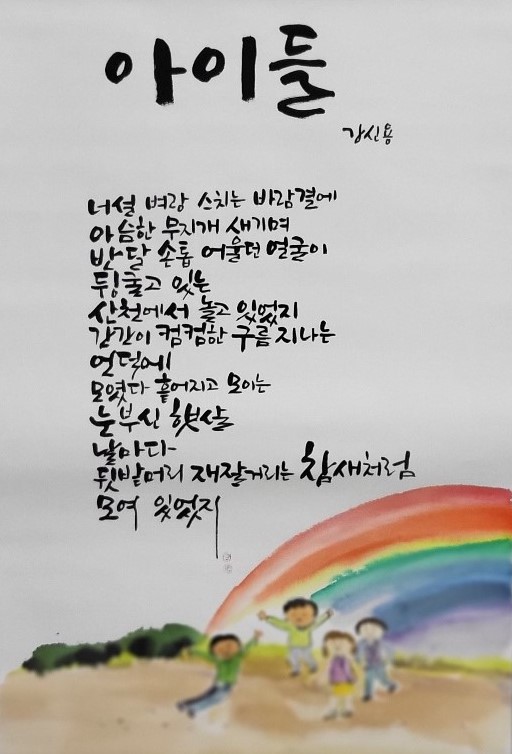 아이들
강신용
너설 벼랑 스치는 바람결에
아슴한 무지개 새기며
반달 손톱 여울던 얼굴이
뒹굴고 있는
산천에서 놀고 있었지
간간이 컴컴한 구름 지나는
언덕에
모였다 흩어지고 모이는
눈부신 햇살
날마다
뒷밭머리 재잘거리는 참새처럼
모여 있었지